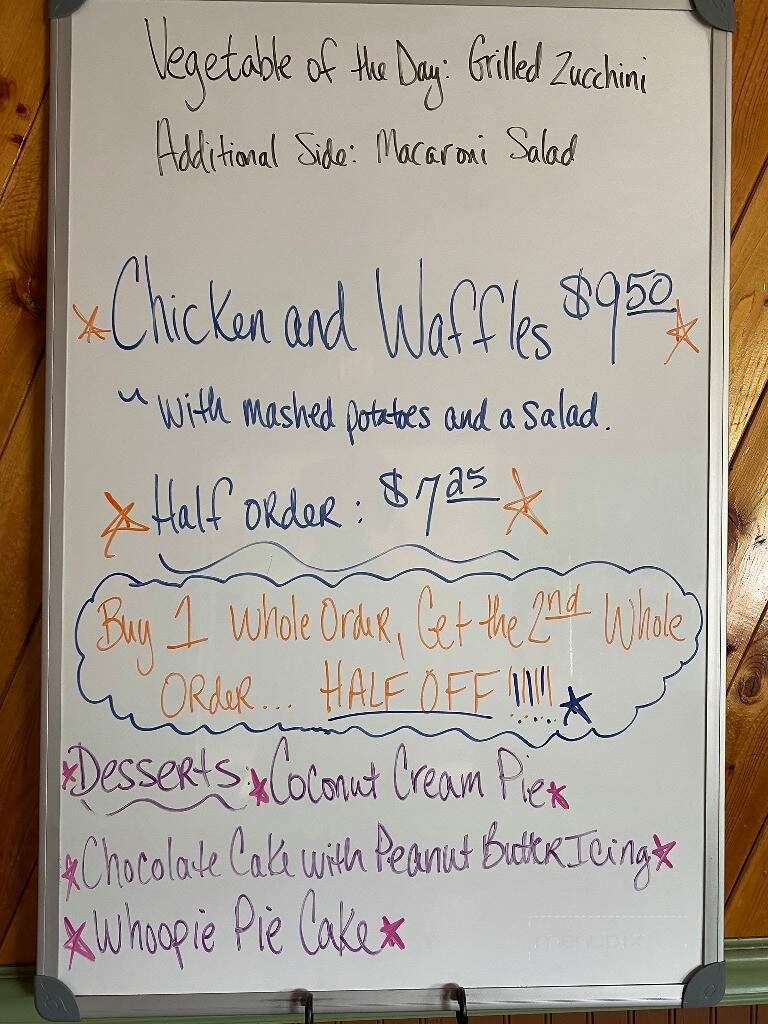 Vegetable of the Day: Grilled Zucchini
Additional Side: Macaroni Salad
Chicken and Waffles $9.50
~ with mashed potatoes and a salad.
Half order: $7.25
Buy 1 Whole Order, Get the 2nd Whole
Order... HALF OFF !!!!!!
Desserts: Coconut Cream Pie
Chocolate Cake with Peanut Butter Icing
Whoopie Pie Cake